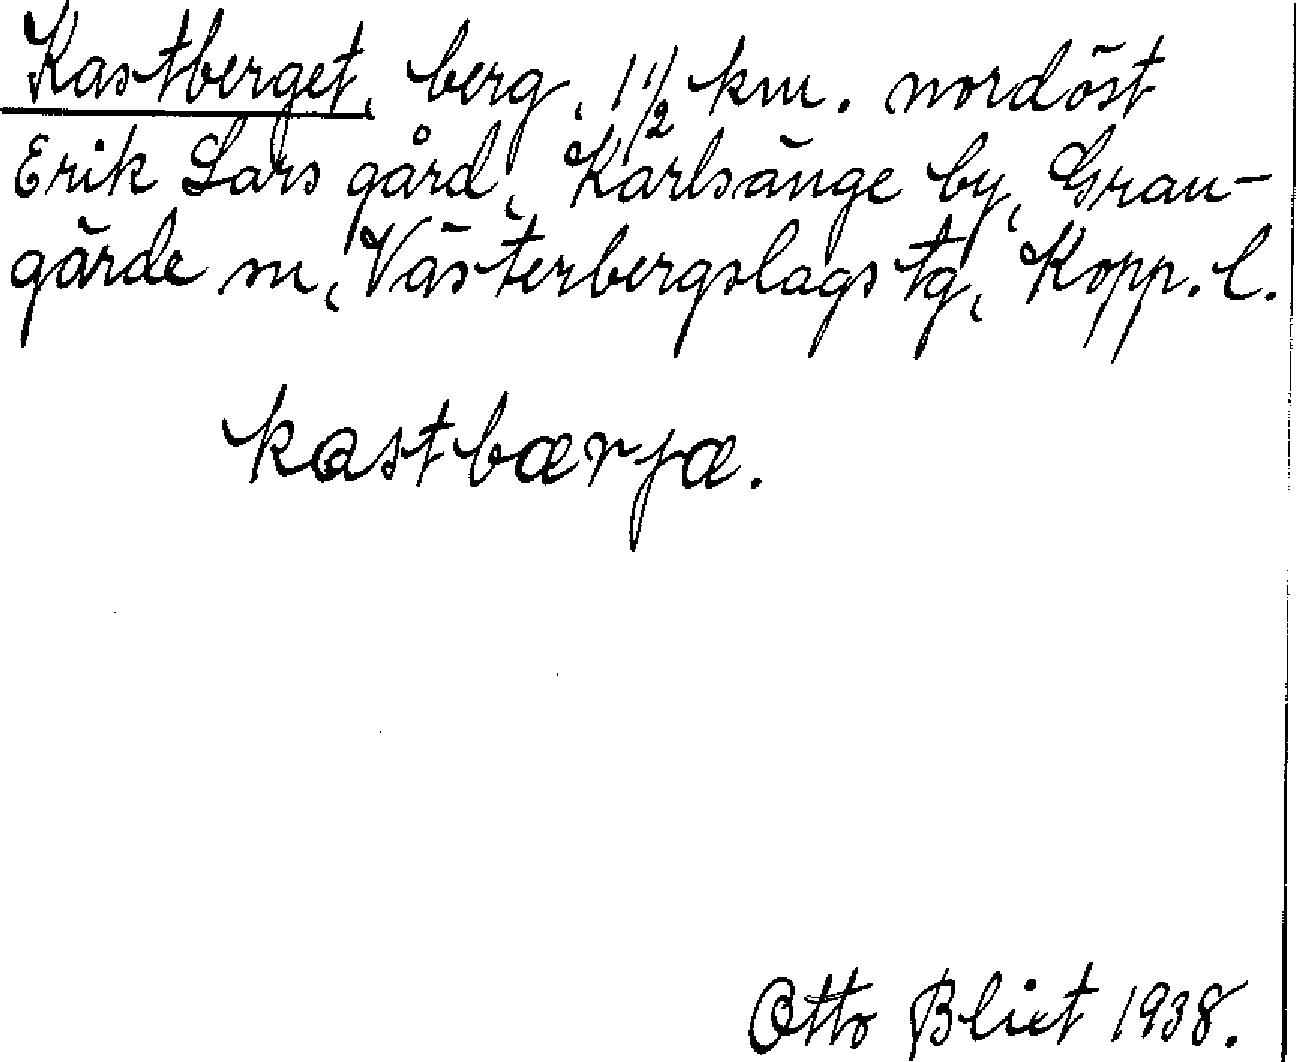 Kastberget, berg, 1 1/2 km. nordöst
Erik Lars gård, Karlsänge by, Gran-
gärde sn, Västerbergslags tg, Kopp. l.
kastbærja.
Otto Blixt 1938.